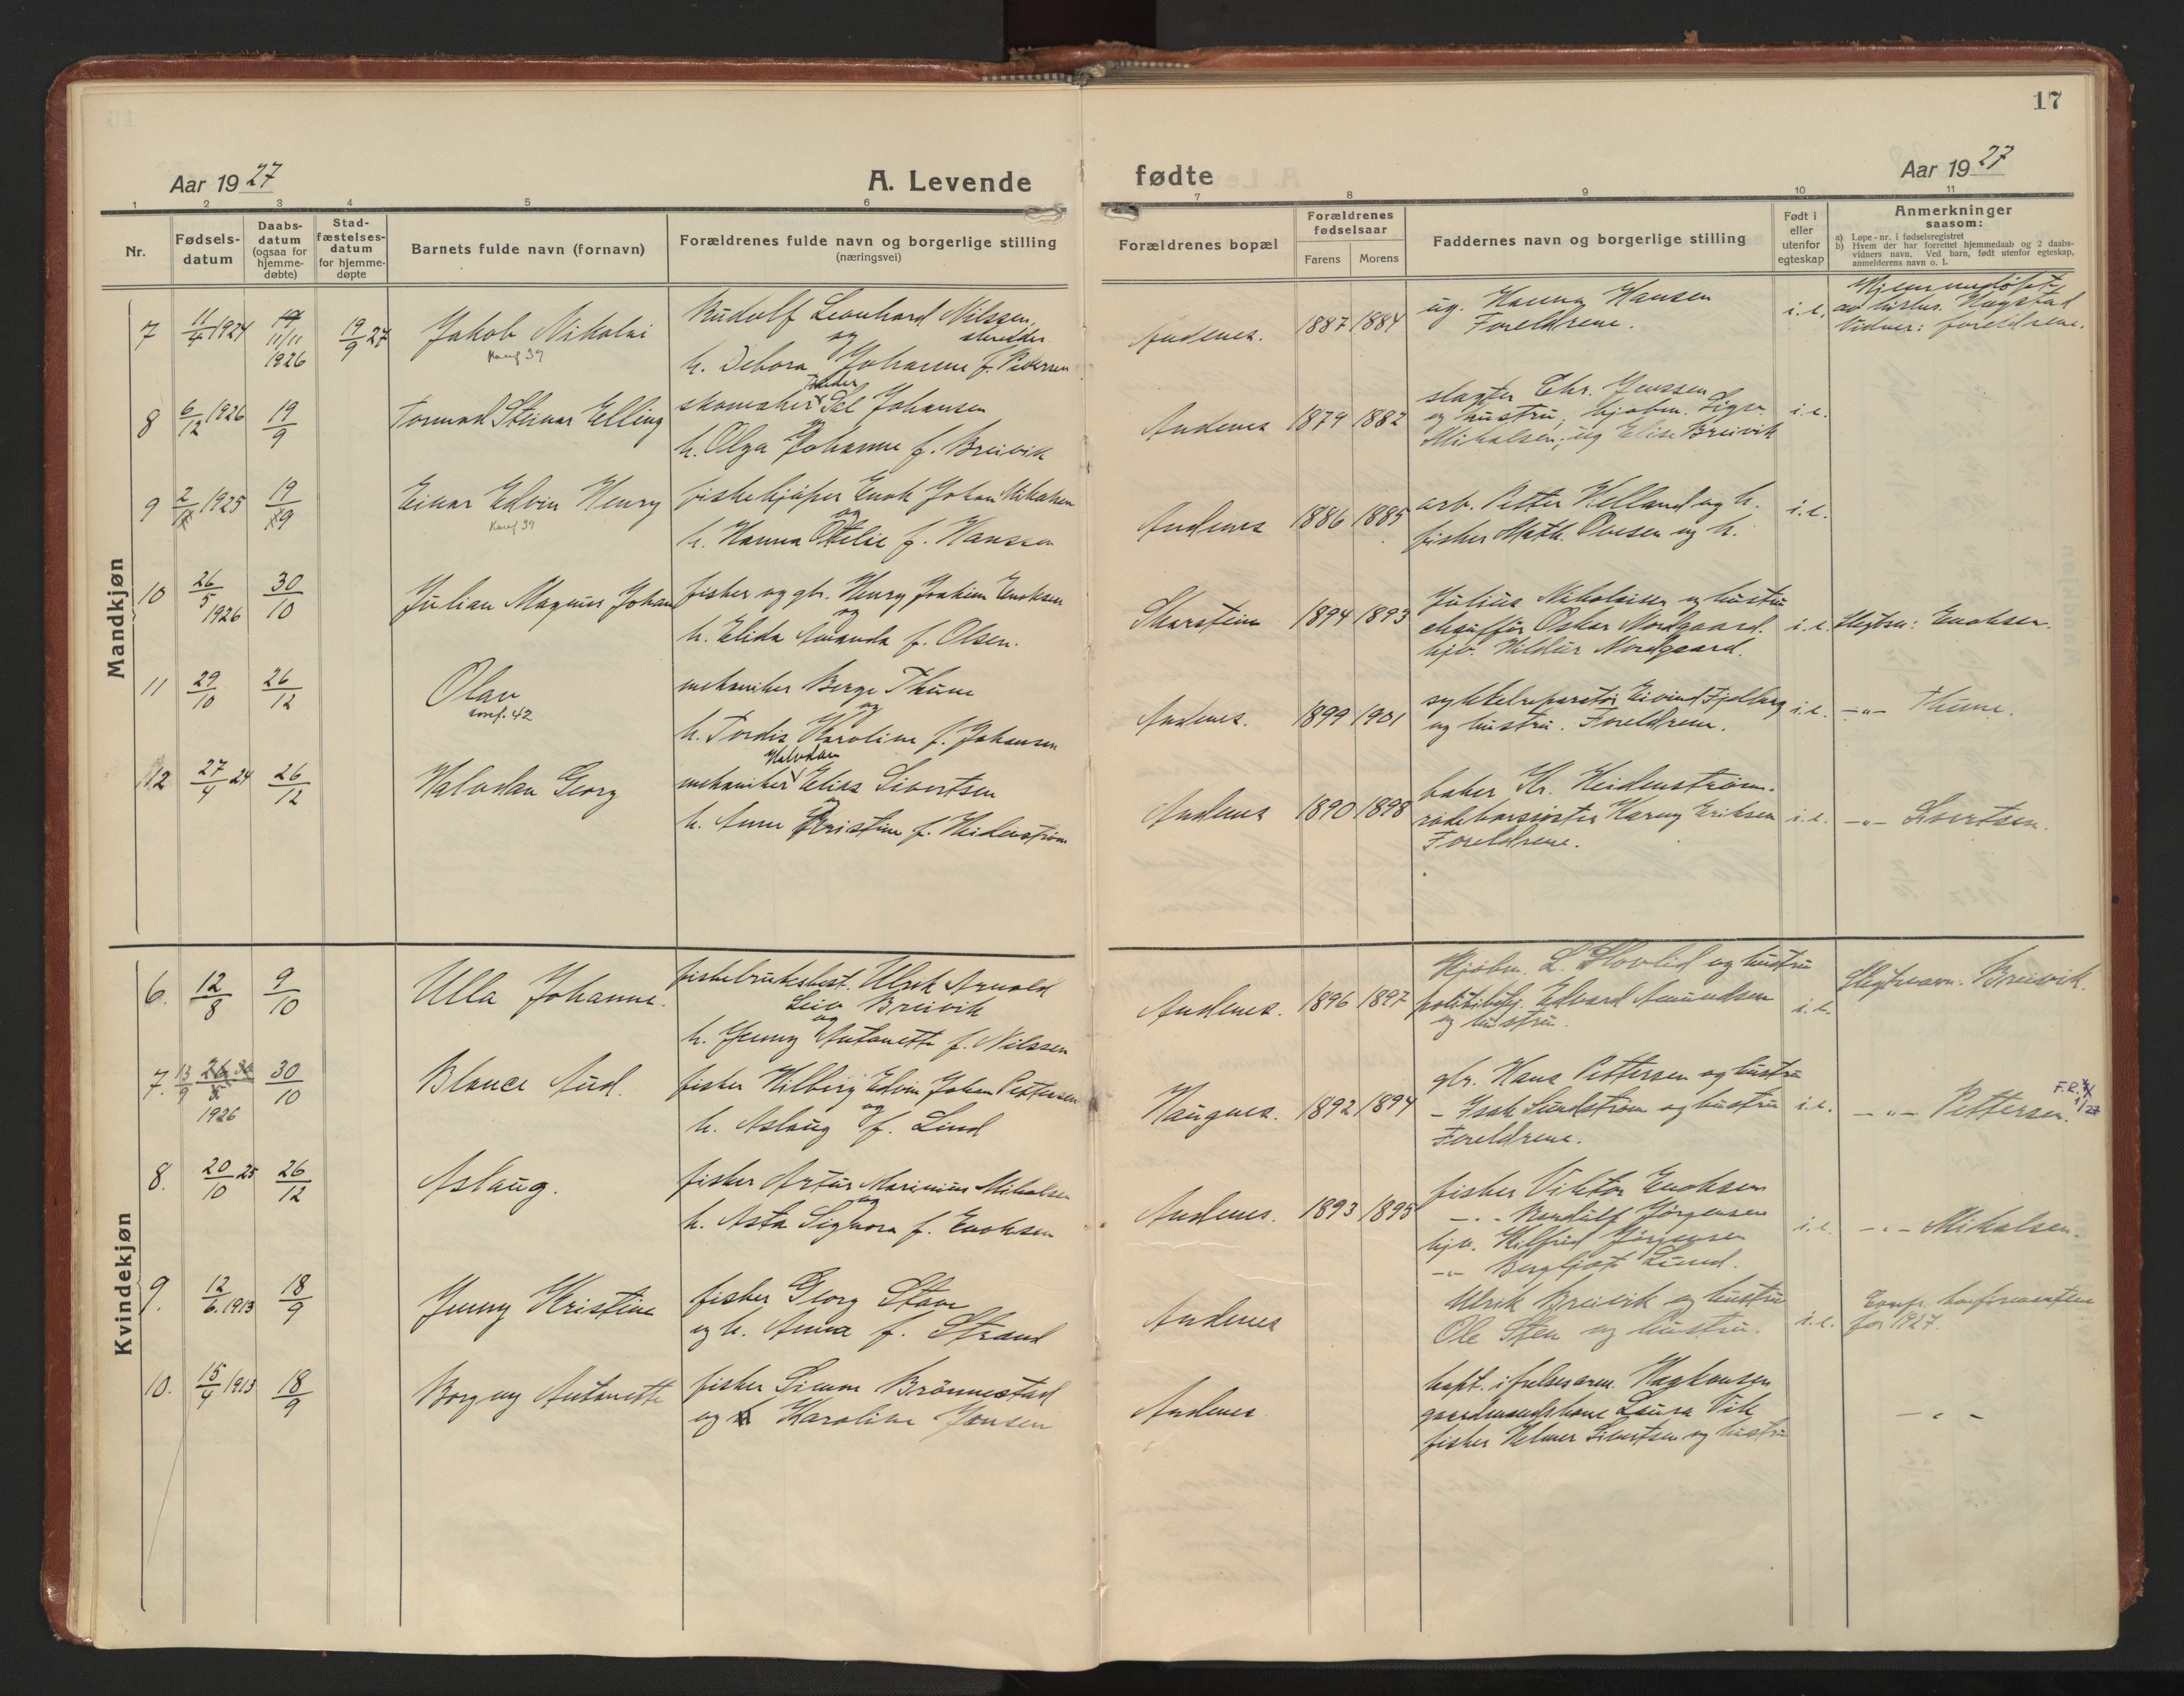 17
Aar 1927
A. Levende
fødte
Aar 1927
1 2 3 4 5 6 7 8 9 10 11
Nr.
Fødsels-
datum
Daabs-
datum
(ogsaa for
hjemme-
døbte)
Stad-
fæstelses-
datum
for hjemme-
døpte
Barnets fulde navn (fornavn)
Forældrenes fulde navn og borgerlige stilling
(næringsvei)
Forældrenes bopæl
Forældrenes
fødselsaar
Farens Morens
Faddernes navn og borgerlige stilling
Født i
eller
utenfor
egteskap
Anmerkninger
saasom:
a) Løpe-nr. i fødselsregistret
b) Hvem der har forrettet hjemmedaab og 2 daabs-
vidners navn. Ved barn, født utenfor egteskap,
anmelderens navn o. l.
Mandkjøn
7 11/4 1924 11/11 1926 19/9 27 Jakob Nikolai
Konf 39
Rudolf Leonhard Nilssen
og
h. Debora Johanne f. Pedersen
Andenes. 1887 1884
ug. Hanna Hansen
Foreldrene.
i.e.
Hjemmedøpt
av Haugstad
Vidner: foreldrene.
8 6/12 1926 19/9 Tormod Steinar Elling
skomaker Peder Johansen
og
h. Olga Johanne f. Breivik
Andenes 1879 1882
slagter Chr. Jenssen
og hustru, kjøbm. Sigv.
Mikalsen, ug Elise Breivik
i.e.
9 2/11 1925 19/9 Einar Edvin Henry
Konf 39
fiskekjøper Enok Johan Mikalsen
og
h. Hanna Otelie f. Hanssen
Andenes 1886 1885
arb. Petter Helland og h.
fisker Math. Olsen og h.
i.e.
10 26/5 1926 30/10 Julian Magnus Johan
fisker og gbr. Henry Joakim Enoksen
og
h. Elida Amanda f. Olsen.
Skarstein 1894 1893
Julius Nikolaisen og hustru
chauffør Oskar Nordgaard.
hjv. Hildur Nordgaard.
i.e. Slegtsn: Enoksen.
11 29/10 26/12 Olav
konf. 42
mekaniker Berge Thune
og
h. Tordis Karoline f. Johansen
Andenes. 1899 1901
sykkelreparatør Eivind Fjellberg
og hustru. Foreldrene.
i.e. -"- Thune.
12 27/4 24 26/12 Halvdan Georg
Halvdan
mekaniker Elias Sivertsen
og
h. Anne Kristine f. Heidenstrøm
Andenes 1890 1898
baker Kr. Heidenstrøm.
rødekorssøster Karen Eriksen
Foreldrene.
i.e. -"- Sivertsen.
Kvindekjøn
6. 12/8 9/10 Ulla Johanne.
fiskebruksbest. Ulrik Arnold
Leiv Breivik
og
h. Jenny Antonette f. Nilssen
Andenes. 1896 1897
Kjøbm. L. Slovlid og hustru
politibetj. Edvard Amundsen
og hustru.
i.e.
Slegtsnavn: Breivik.
7. 13/9 1926 30/10 Blance Aud.
fisker Hilberg Edvin Johan Pettersen
og
h. Aslaug f. Lind
Haugnes. 1892 1894
gbr. Hans Pettersen og hustru
- Isak Sundstrøm og hustru
Foreldrene.
i.e. -"- Pettersen.
8. 20/10 25 26/12 Aslaug.
fisker Artur Marinius Mikalsen
og
h. Asta Signora f. Enoksen
Andenes. 1893 1895
fisker Viktor Enoksen
-"- Jørgensen
hjv. Hilfrid Jørgensen
-"- Bergljot Lund.
i.e. -"- Mikalsen.
9. 12/6. 1913 18/9 Jenny Kristine
fisker Georg Stave
og h. Anna f. Strand
Andenes
Ulrik Breivik og hustru
Ole Sten og hustru.
i.e.
konfirmanten
for 1927.
10. 15/4 1913 18/9 Borgny Antonette
fisker Simon Brønnestad
og Karoline Jensen
Andenes
kapt. i frelsesarm. Haakonsen
gaardmandskone Laura Vik
fisker Helmer Sivertsen og hustru
-"-